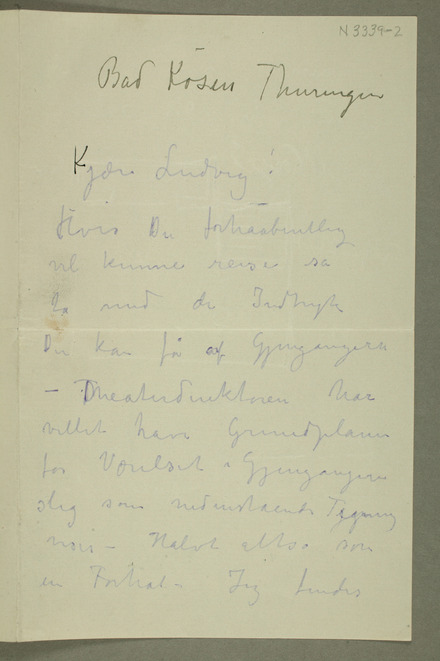 N 3339-2
Bad Kösen Thuringen
Kjære Ludvig!
Hvis Du forhåbentlig
vil kunne reise så
ta med de Indtryk
Du kan få af Gjengangere
– Theaterdirektøren har
villet have Grundplanen
for Værelset i Gjengangere
slig som nedenstående Tegning
viser – Halvt altså som
en Forhal – Jeg findes